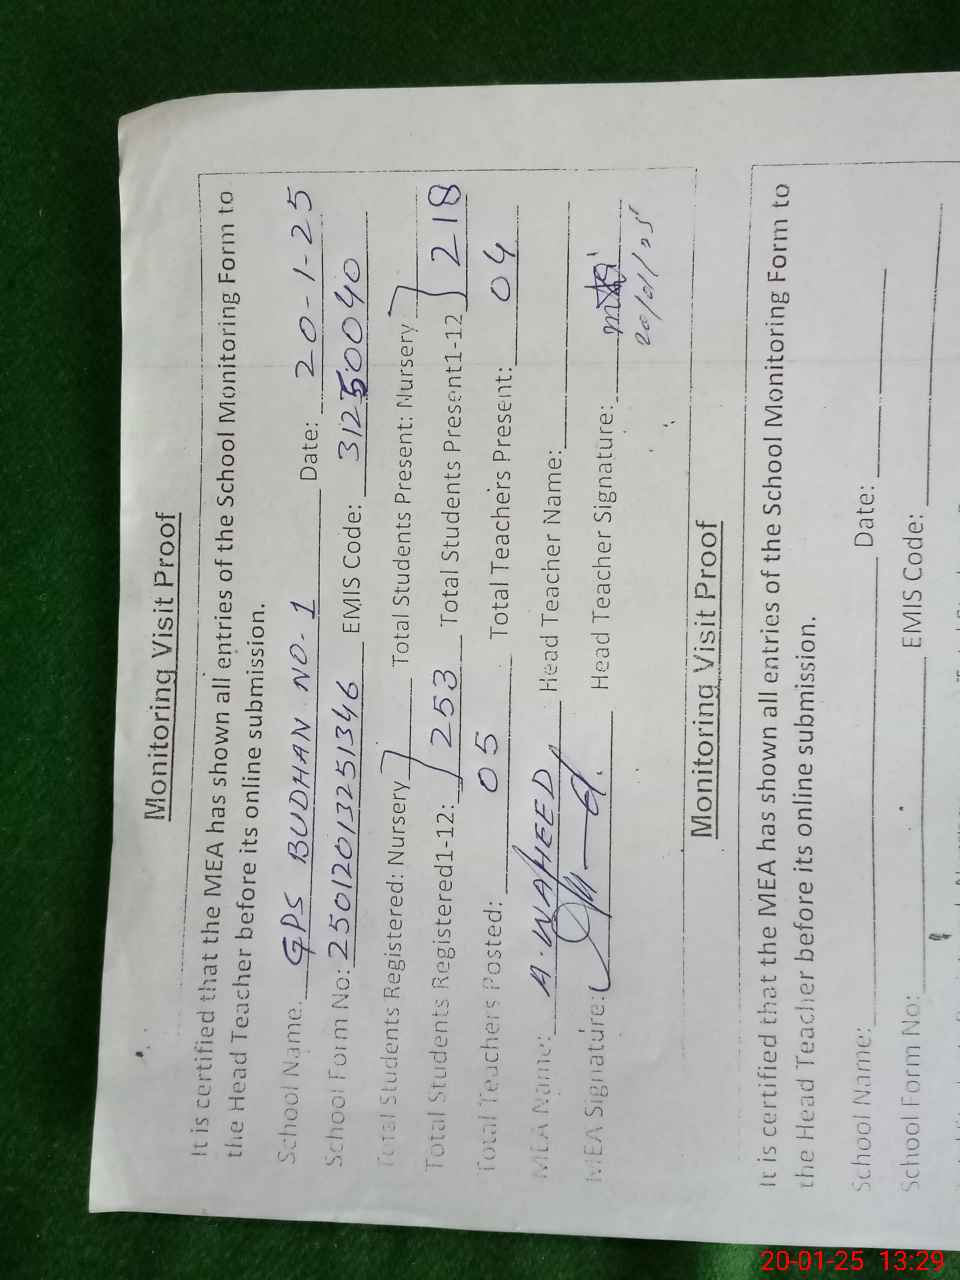 Monitoring Visit Proof
It is certified that the MEA has shown all entries of the School Monitoring Form to
the Head Teacher before its online submission.
School Name: GPS BUDHAN NO-1 Date: 20-1-25
School Form No: 2501201325 1346 EMIS Code: 31250040
Total Students Registered: Nursery Total Students Present: Nursery
Total Students Registered1-12: 253 Total Students Present1-12 218
Total Teachers Posted: 05 Total Teachers Present: 04
MEA Name: A.WAHEED Head Teacher Name:
MEA Signature: Head Teacher Signature:
20/01/25
Monitoring Visit Proof
It is certified that the MEA has shown all entries of the School Monitoring Form to
the Head Teacher before its online submission.
School Name: Date:
School Form No: EMIS Code:
20-01-25 13:29